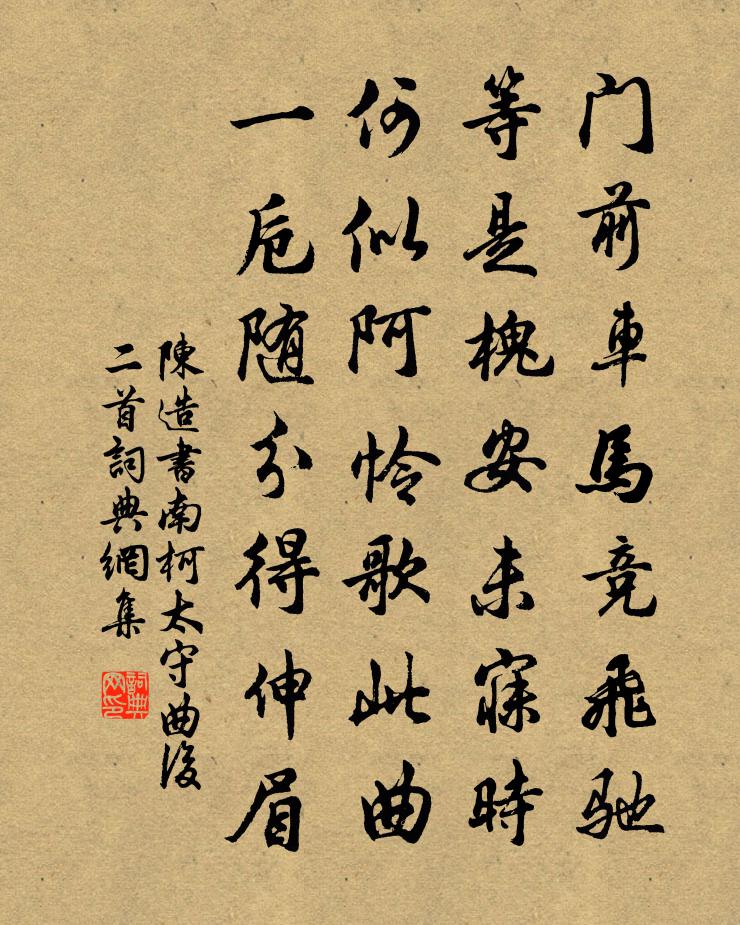 门前車馬竞飛馳
等是槐安未寐時
何似阿怜歌此曲
一卮随分得伸眉
陳造書南柯太守曲後
二首詞典網集
詞典
网印